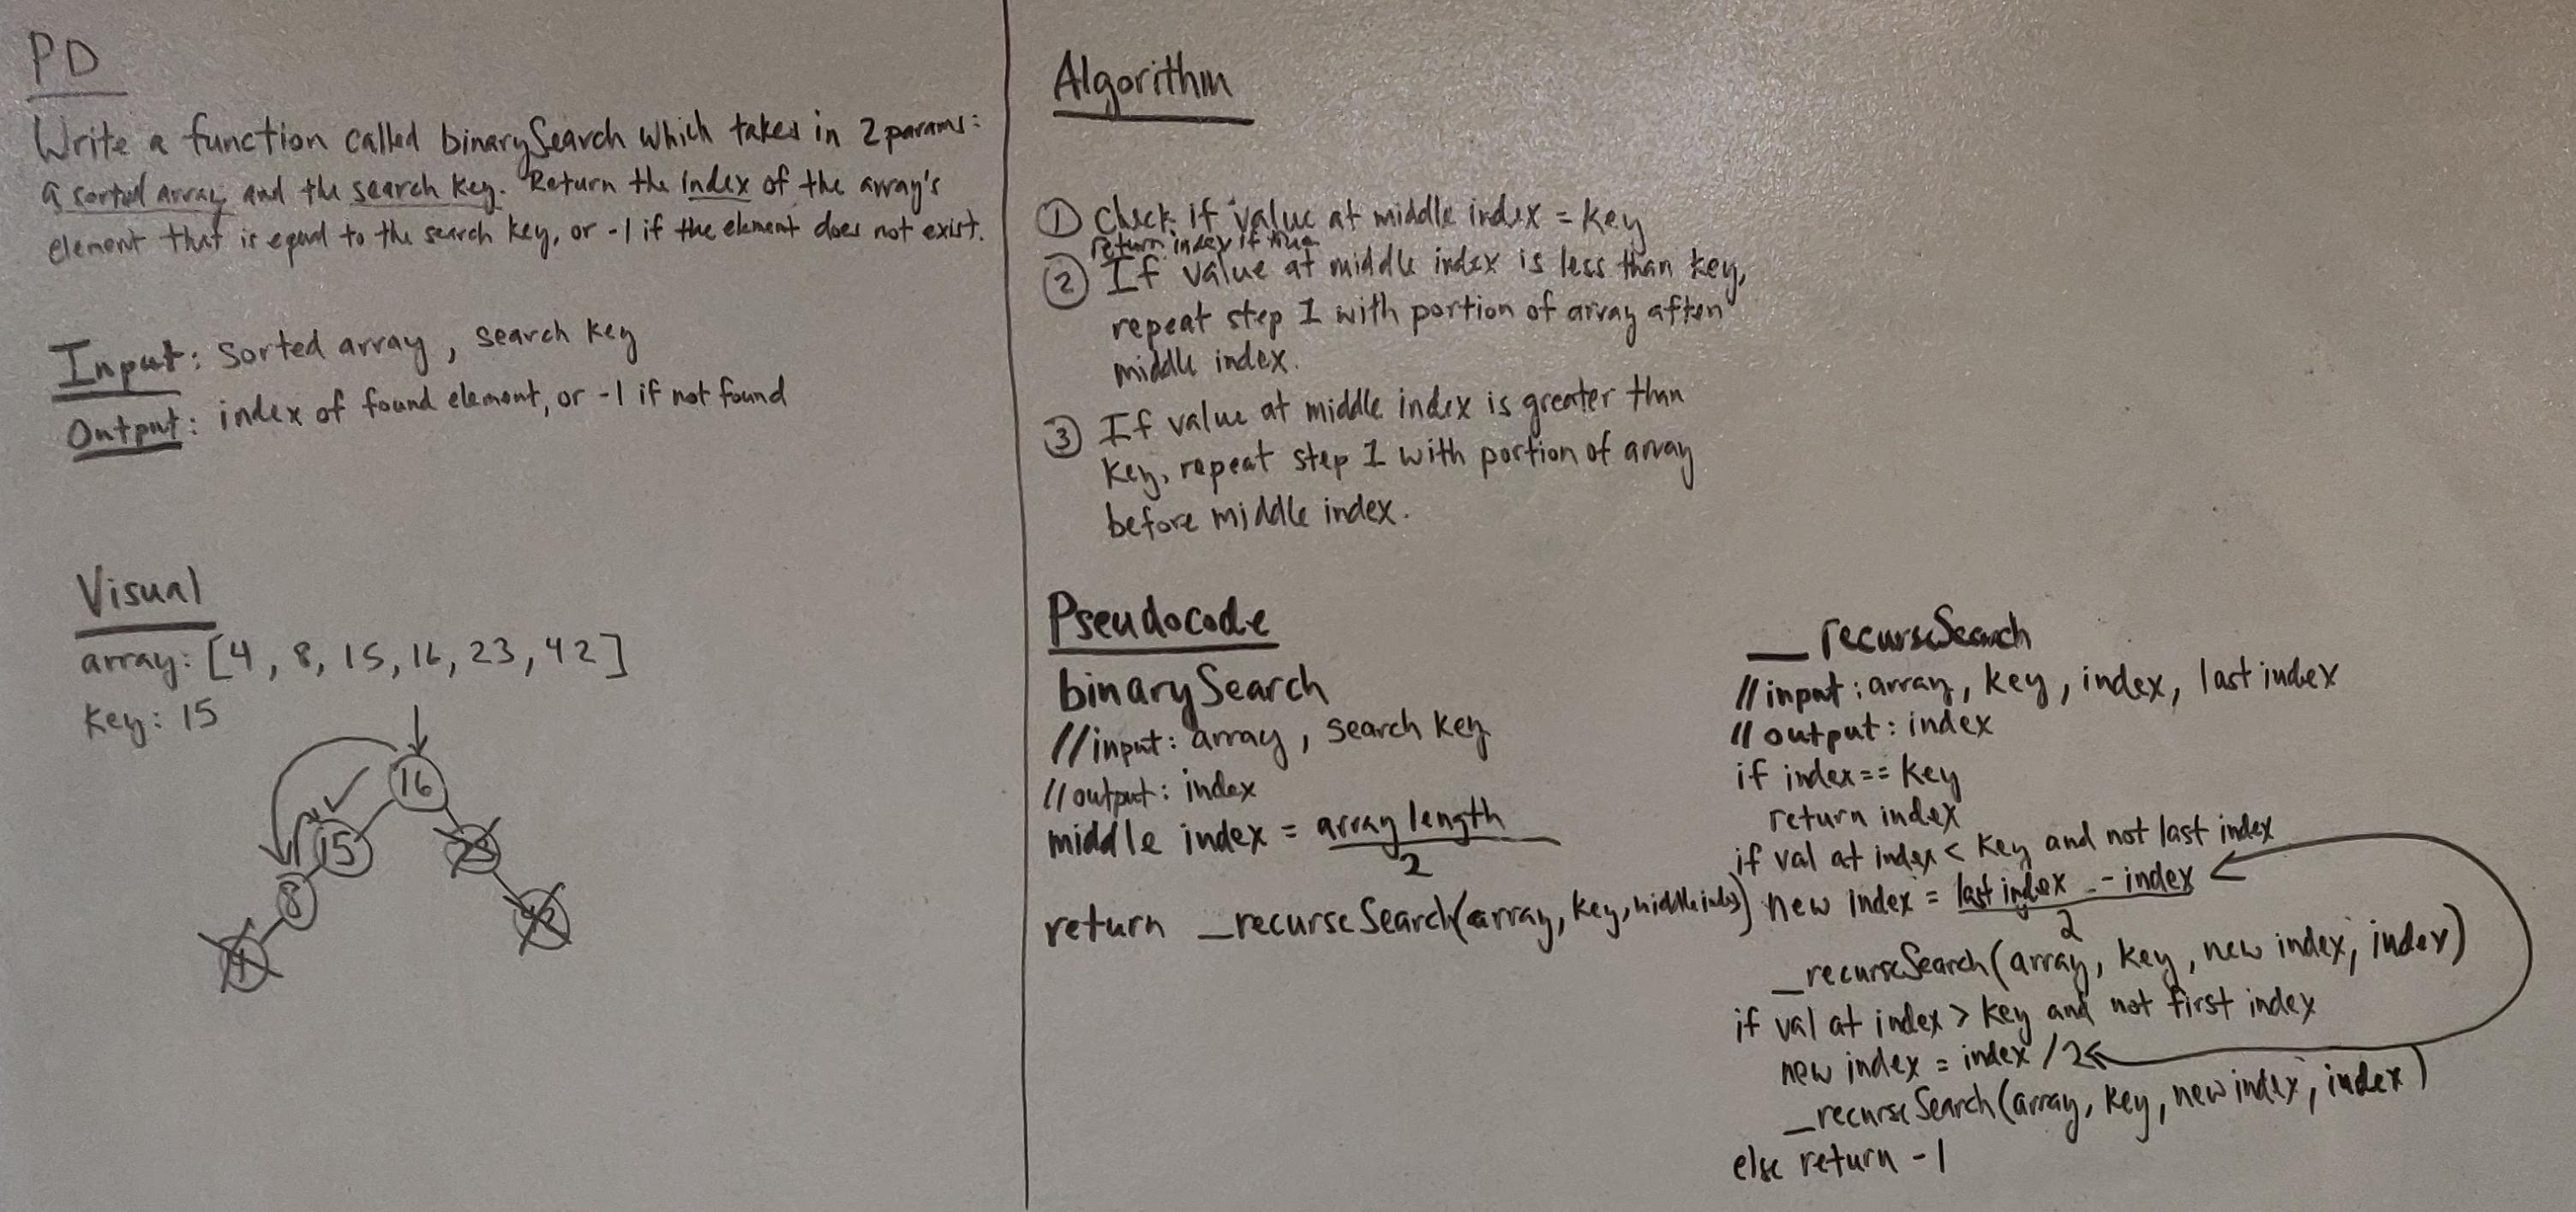 PD
Write a function called binarySearch which takes in 2 params:
a sorted array and the search key. Return the index of the array's
element that is equal to the search key, or -1 if the element does not exist.
Input: Sorted array, search key
Output: index of found element, or -1 if not found
Visual
array: [4, 8, 15, 16, 23, 42]
key: 15
16
15
23
8
42
4
Algorithm
① Check if value at middle index = key
return index if true
② If value at middle index is less than key,
repeat step 1 with portion of array after
middle index.
③ If value at middle index is greater than
key, repeat step 1 with portion of array
before middle index.
Pseudocode
binarySearch
//input: array, search key
//output: index
middle index = array length
2
return _recurseSearch(array, key, middle index)
_recurseSearch
//input: array, key, index, last index
//output: index
if index == key
return index
if val at index < key and not last index
new index = last index - index
2
_recurseSearch(array, key, new index, index)
if val at index > key and not first index
new index = index / 2
_recurseSearch(array, key, new index, index)
else return -1